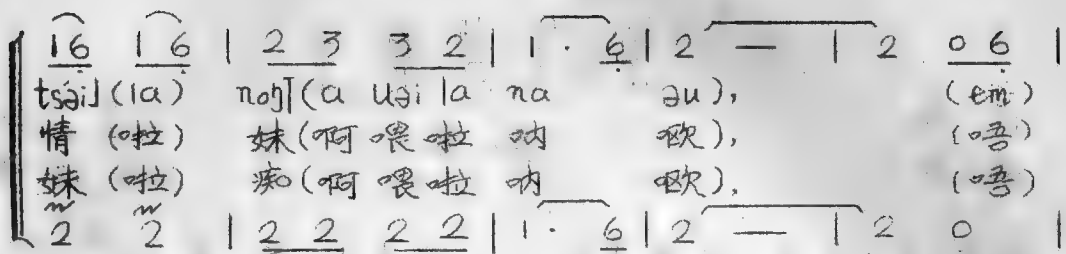 1 6 1 6 | 2 3 3 2 | 1 · 6 | 2 — | 2 0 6 |
tsəi˩ (la) noŋ˥ (a uəi la na əu), (em)
情 (啦) 妹 (啊 喂 啦 呐 欧), (唔)
妹 (啦) 痴 (啊 喂 啦 呐 欧), (唔)
2 2 | 2 2 2 2 | 1 · 6 | 2 — | 2 0 |